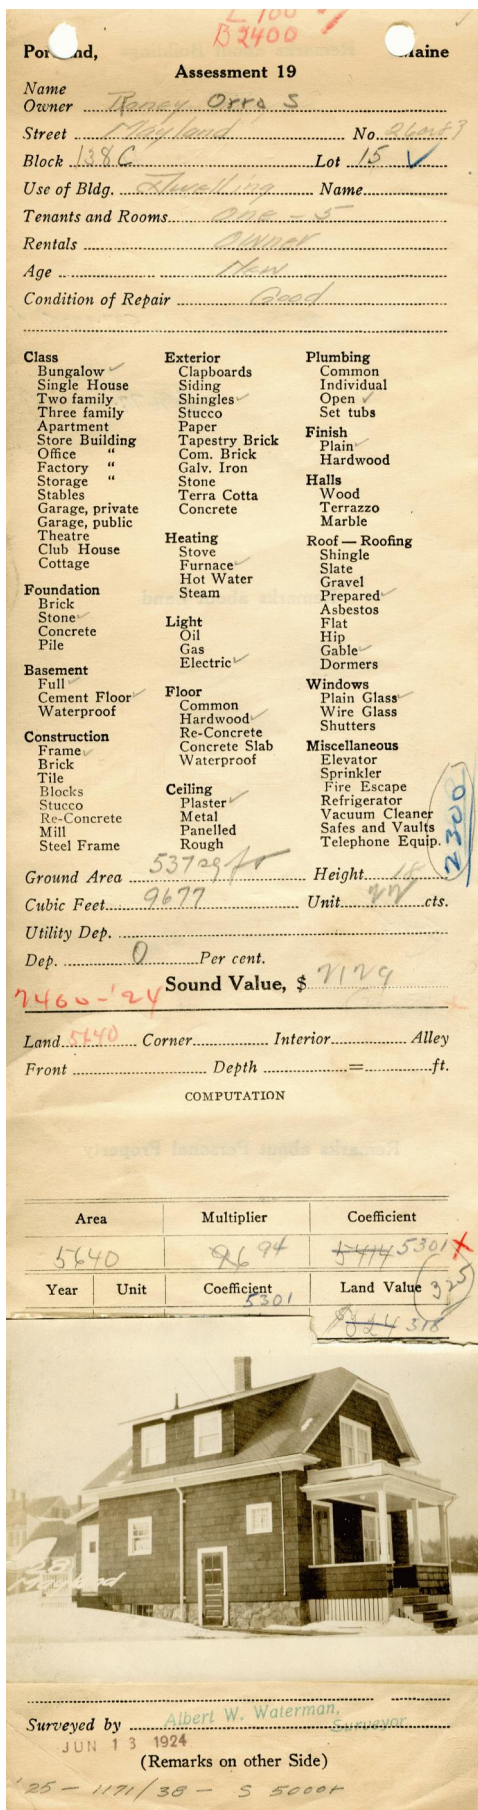 L 100
B 2400
Portland, Maine
Assessment 19
Name
Owner Raney Orra S
Street Mayland No.
Block 138C Lot 15 ✓
Use of Bldg. Dwelling Name
Tenants and Rooms One - 5
Rentals Owner
Age New
Condition of Repair Good
Class
Bungalow ✓
Single House
Two family
Three family
Apartment
Store Building
Office "
Factory "
Storage "
Stables
Garage, private
Garage, public
Theatre
Club House
Cottage
Foundation
Brick
Stone ✓
Concrete
Pile
Basement
Full ✓
Cement Floor ✓
Waterproof
Construction
Frame ✓
Brick
Tile
Blocks
Stucco
Re-Concrete
Mill
Steel Frame
Exterior
Clapboards
Siding
Shingles ✓
Stucco
Paper
Tapestry Brick
Com. Brick
Galv. Iron
Stone
Terra Cotta
Concrete
Heating
Stove
Furnace ✓
Hot Water
Steam
Light
Oil
Gas
Electric ✓
Floor
Common
Hardwood ✓
Re-Concrete
Concrete Slab
Waterproof
Ceiling
Plaster ✓
Metal
Panelled
Rough
Plumbing
Common
Individual
Open ✓
Set tubs
Finish
Plain ✓
Hardwood
Halls
Wood
Terrazzo
Marble
Roof — Roofing
Shingle
Slate
Gravel
Prepared ✓
Asbestos
Flat
Hip
Gable ✓
Dormers
Windows
Plain Glass ✓
Wire Glass
Shutters
Miscellaneous
Elevator
Sprinkler
Fire Escape
Refrigerator
Vacuum Cleaner
Safes and Vaults
Telephone Equip.
2300
Ground Area 537 sq ft Height 18
Cubic Feet 9677 Unit 22 cts.
Utility Dep.
Dep. 0 Per cent.
Sound Value, $ 2129
2400-'24
Land 5640 Corner Interior Alley
Front Depth = ft.
COMPUTATION
Area Multiplier Coefficient
5640 96 94 5414 5301 X
Year Unit Coefficient Land Value 325
5301
$324 318
28
Mayland
Surveyed by Albert W. Waterman,
Surveyor
JUN 13 1924
(Remarks on other Side)
'25 - 1171/38 - S